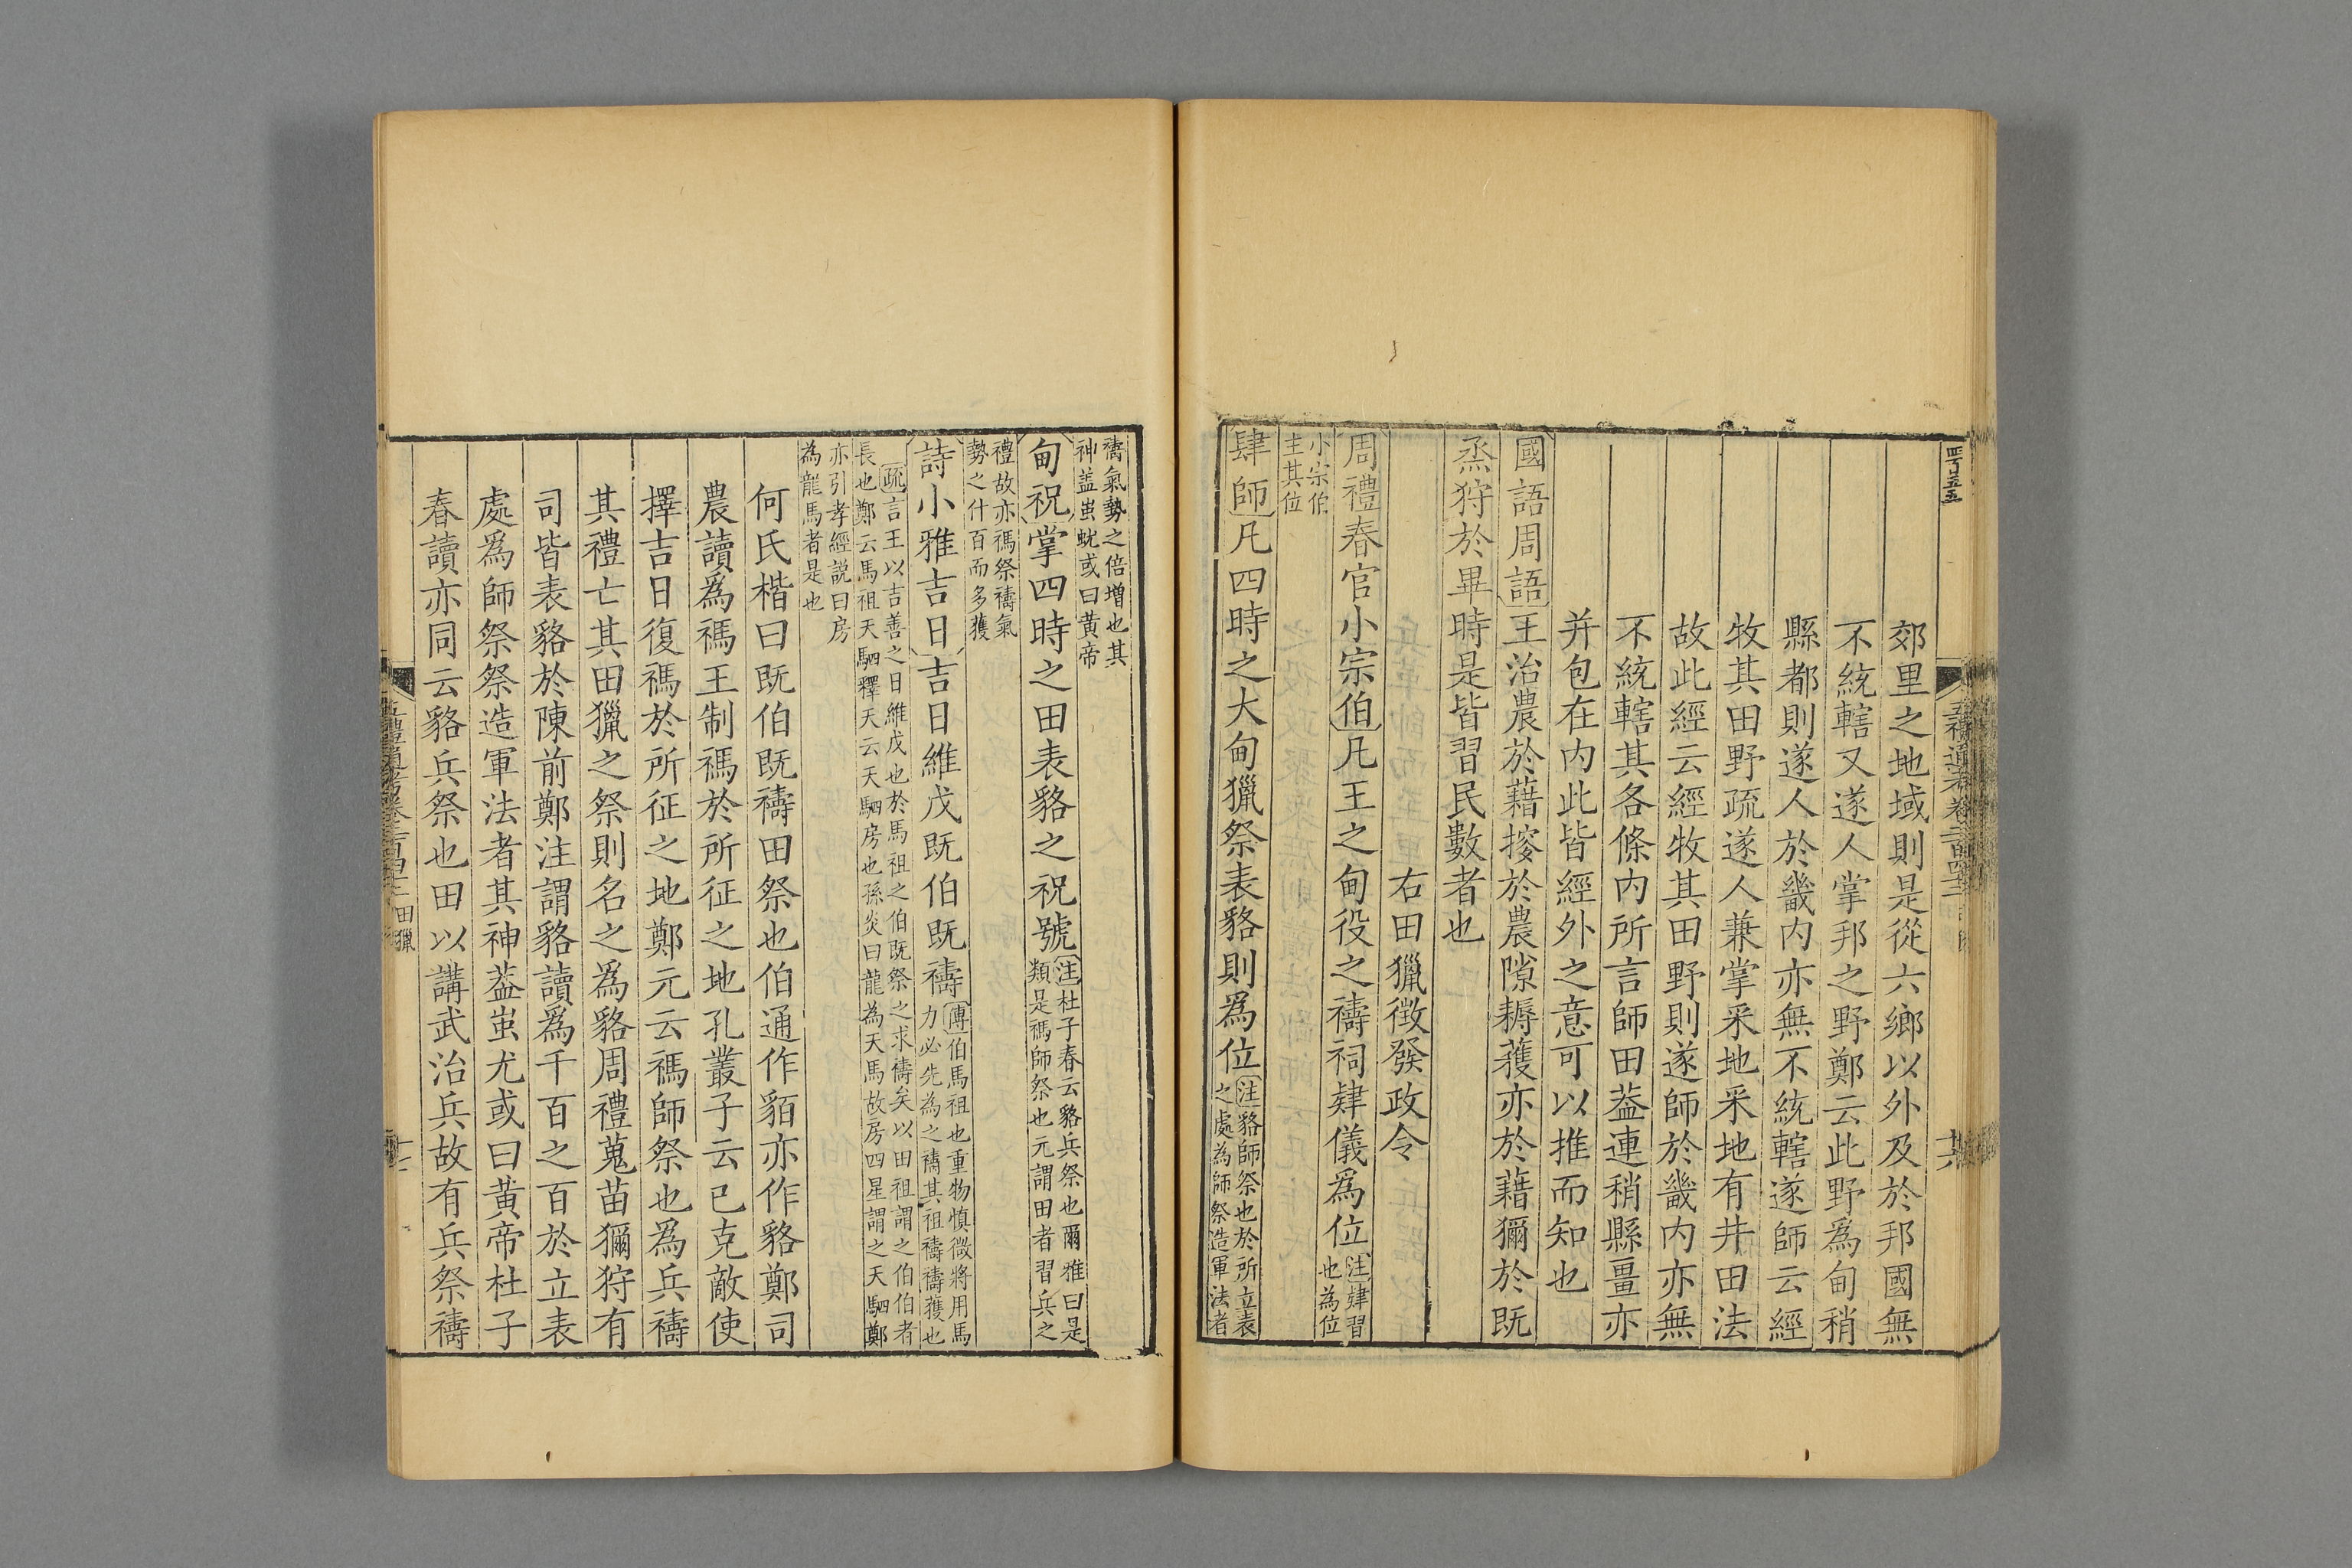 郊里之地域則是從六鄉以外及於邦國無
不統轄又遂人掌邦之野鄭云此野爲甸稍
縣都則遂人於畿内亦無不統轄遂師云經
牧其田野疏遂人兼掌采地采地有井田法
故此經云經牧其田野則遂師於畿内亦無
不統轄其各條内所言師田葢連稍縣畺亦
并包在内此皆經外之意可以推而知也
國語周語王治農於藉搜於農隙耨穫亦於藉獮於既
烝狩於畢時是皆習民數者也
右田獵徴發政令
周禮春官小宗伯凡王之甸役之禱祠肄儀爲位注肄習
也為位
小宗伯
主其位
肆師凡四時之大甸獵祭表貉則爲位注貉師祭也於所立表
之處為師祭造軍法者
禱氣勢之倍增也其
神葢蚩蚘或曰黄帝
甸祝掌四時之田表貉之祝號注杜子春云貉兵祭也爾雅曰是
類是禡師祭也元謂田者習兵之
禮故亦禡祭禱氣
勢之什百而多獲
詩小雅吉日吉日維戊既伯既禱傳伯馬祖也重物慎微將用馬
力必先為之禱其祖禱禱獲也
疏言王以吉善之日維戊也於馬祖之伯既祭之求禱矣以田祖謂之伯伯者
長也鄭云馬祖天駟釋天云天駟房也孫炎曰龍為天馬故房四星謂之天駟鄭
亦引孝經説曰房
為龍馬者是也
何氏楷曰既伯既禱田祭也伯通作貊亦作貉鄭司
農讀爲禡王制禡於所征之地孔叢子云已克敵使
擇吉日復禡於所征之地鄭元云禡師祭也爲兵禱
其禮亡其田獵之祭則名之爲貉周禮蒐苗獮狩有
司皆表貉於陳前鄭注謂貉讀爲千百之百於立表
處爲師祭祭造軍法者其神葢蚩尤或曰黄帝杜子
春讀亦同云貉兵祭也田以講武治兵故有兵祭禱
五禮通考卷二百四十二 田獵